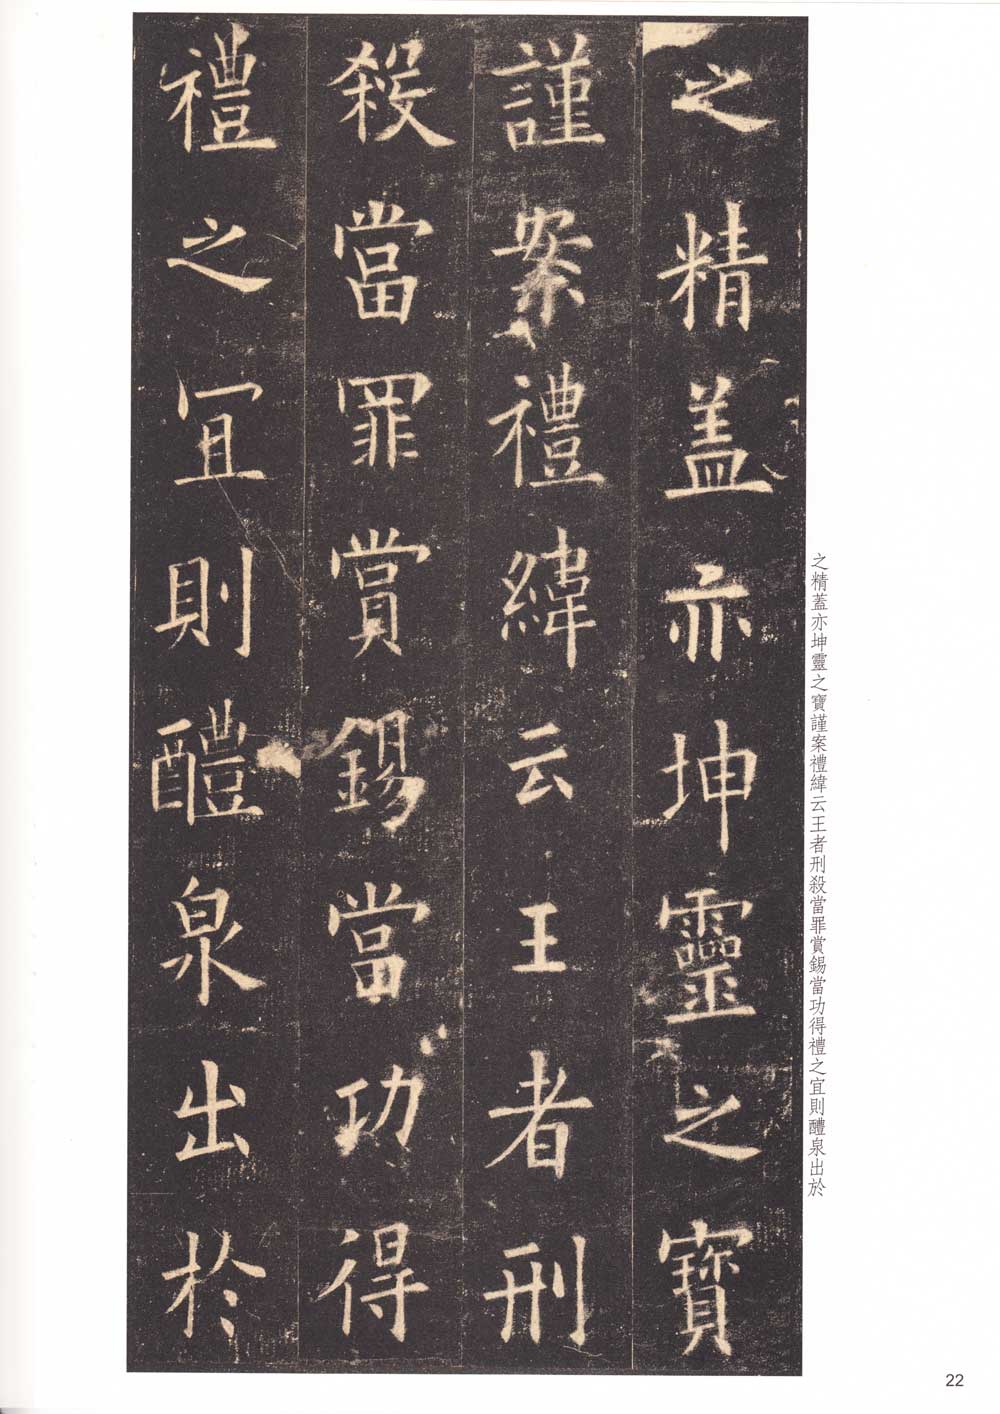 之精蓋亦坤靈之寶
謹案禮緯云王者刑
殺當罪賞錫當功得
禮之宜則醴泉出於
之精蓋亦坤靈之寶謹案禮緯云王者刑殺當罪賞錫當功得禮之宜則醴泉出於
22